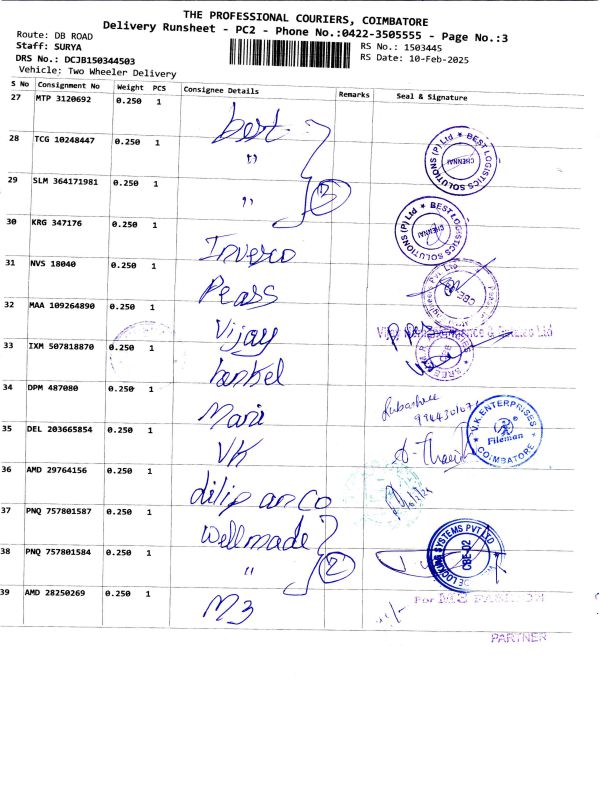 THE PROFESSIONAL COURIERS, COIMBATORE
Delivery Runsheet - PC2 - Phone No.:0422-3505555 - Page No.:3
Route: DB ROAD
Staff: SURYA
DRS No.: DCJB150344503
Vehicle: Two Wheeler Delivery
RS No.: 1503445
RS Date: 10-Feb-2025
S No Consignment No Weight PCS Consignee Details Remarks Seal & Signature
27 MTP 3120692 0.250 1 best
28 TCG 10248447 0.250 1 "
29 SLM 364171981 0.250 1 " 3
BEST LOGISTICS SOLUTIONS (P) Ltd ★ CHENNAI
30 KRG 347176 0.250 1 Invesco
BEST LOGISTICS SOLUTIONS (P) Ltd ★ CHENNAI
31 NVS 18040 0.250 1 Pears
CBE
32 MAA 109264890 0.250 1 Vijay
33 IXM 507818870 0.250 1 henkel
34 DPM 487080 0.250 1 Mari
35 DEL 203665854 0.250 1 VK
V.K ENTERPRISES Fileman ★ COIMBATORE ★
36 AMD 29764156 0.250 1 dilip an co
37 PNQ 757801587 0.250 1 Wellmade
38 PNQ 757801584 0.250 1 " 2
LOCKING SYSTEMS PVT LTD CBE-02
39 AMD 28250269 0.250 1 M3
For
PARTNER